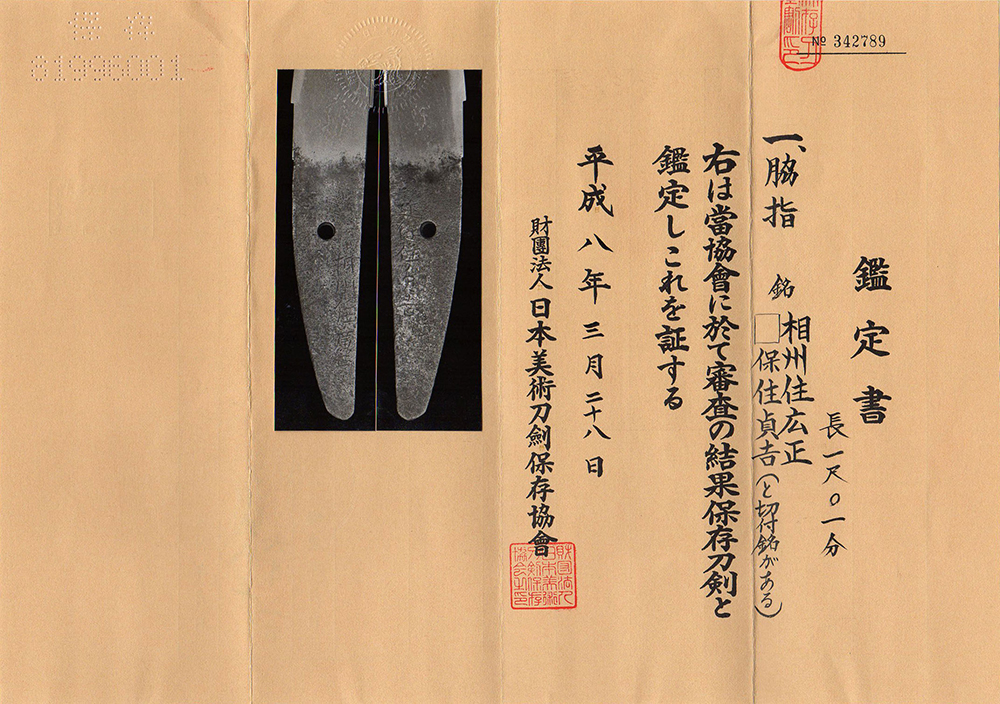 № 342789
鑑定書
長一尺〇一分
一、脇指 銘 相州住広正
□保住貞吉(と切付銘がある)
右は當協會に於て審査の結果保存刀剣と
鑑定しこれを証する
平成八年三月二十八日
財團法人日本美術刀劍保存協會
保存
81996001